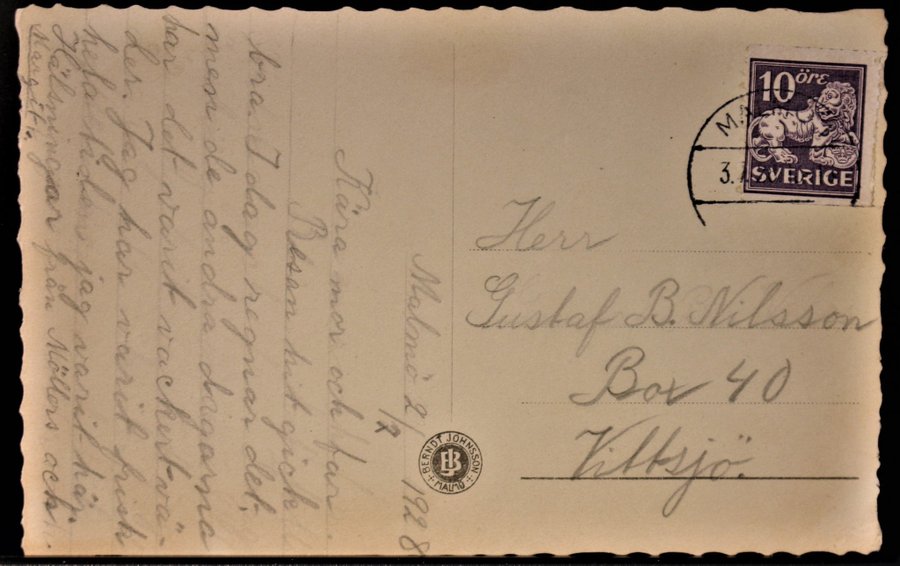 Malmö 2/7 1928
Kära mor och far.
Resan hit gick
bra. I dag regnar det
men de andra dagarna
har det varit vackert vä-
der. Jag har varit frisk
hela tiden jag varit här.
Hälsningar från Möllers och
Margit.
10 öre
SVERIGE
3.7
Herr
Gustaf B. Nilsson
Box 40
Vittsjö.
BERNDT JOHNSSON
BJ
MALMÖ